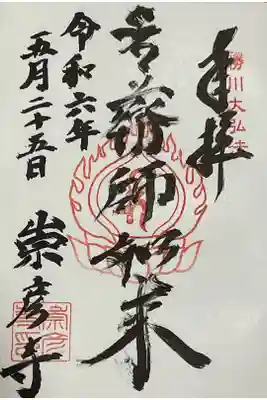 奉拝
勝川大弘法
薬師如来
令和六年
五月二十五日
崇彦寺